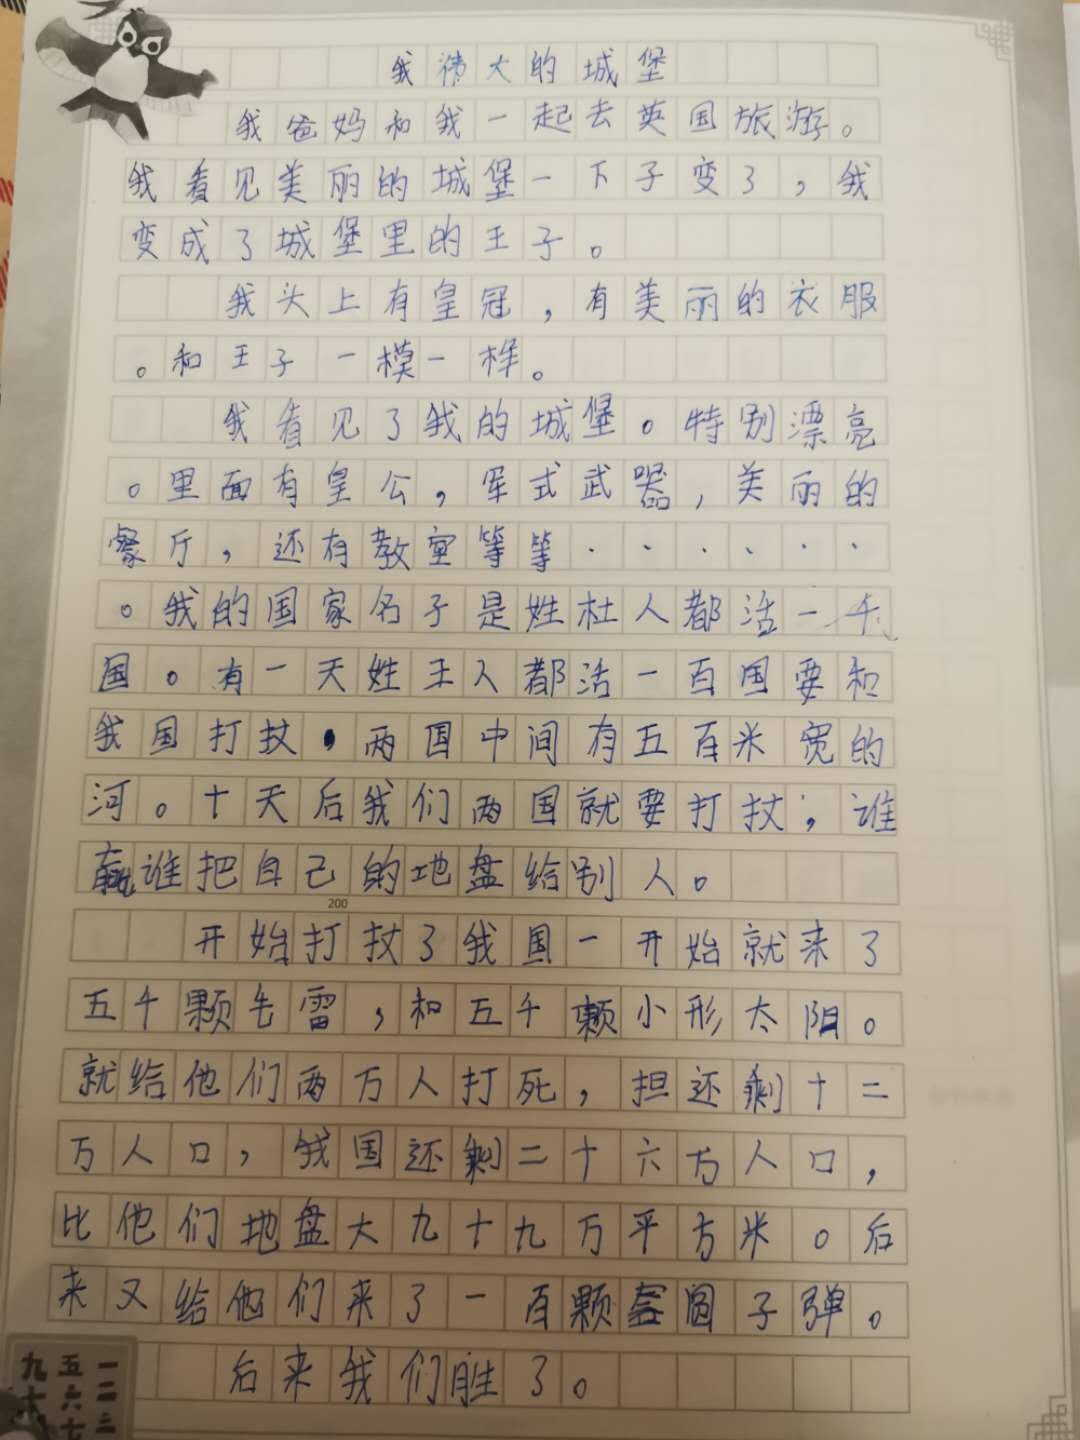 我祎大的城堡
我爸妈和我一起去英国旅游。
我看见美丽的城堡一下子变了，我
变成了城堡里的王子。
我头上有皇冠，有美丽的衣服
。和王子一模一样。
我看见了我的城堡。特别漂亮
。里面有皇公，军式武器，美丽的
餐厅，还有教室等等······
。我的国家名子是姓杜人都活一千
国。有一天姓王人都活一百国要和
我国打扙，两国中间有五百米宽的
河。十天后我们两国就要打扙；谁
赢谁把自己的地盘给别人。
200
开始打扙了我国一开始就来了
五千颗毛雷，和五千颗小形太阳。
就给他们两万人打死，担还剩十二
万人口，我国还剩二十六万人口，
比他们地盘大九十九万平方米。后
来又给他们来了一百颗圆子弹。
后来我们胜了。
一二三
五六七
九十